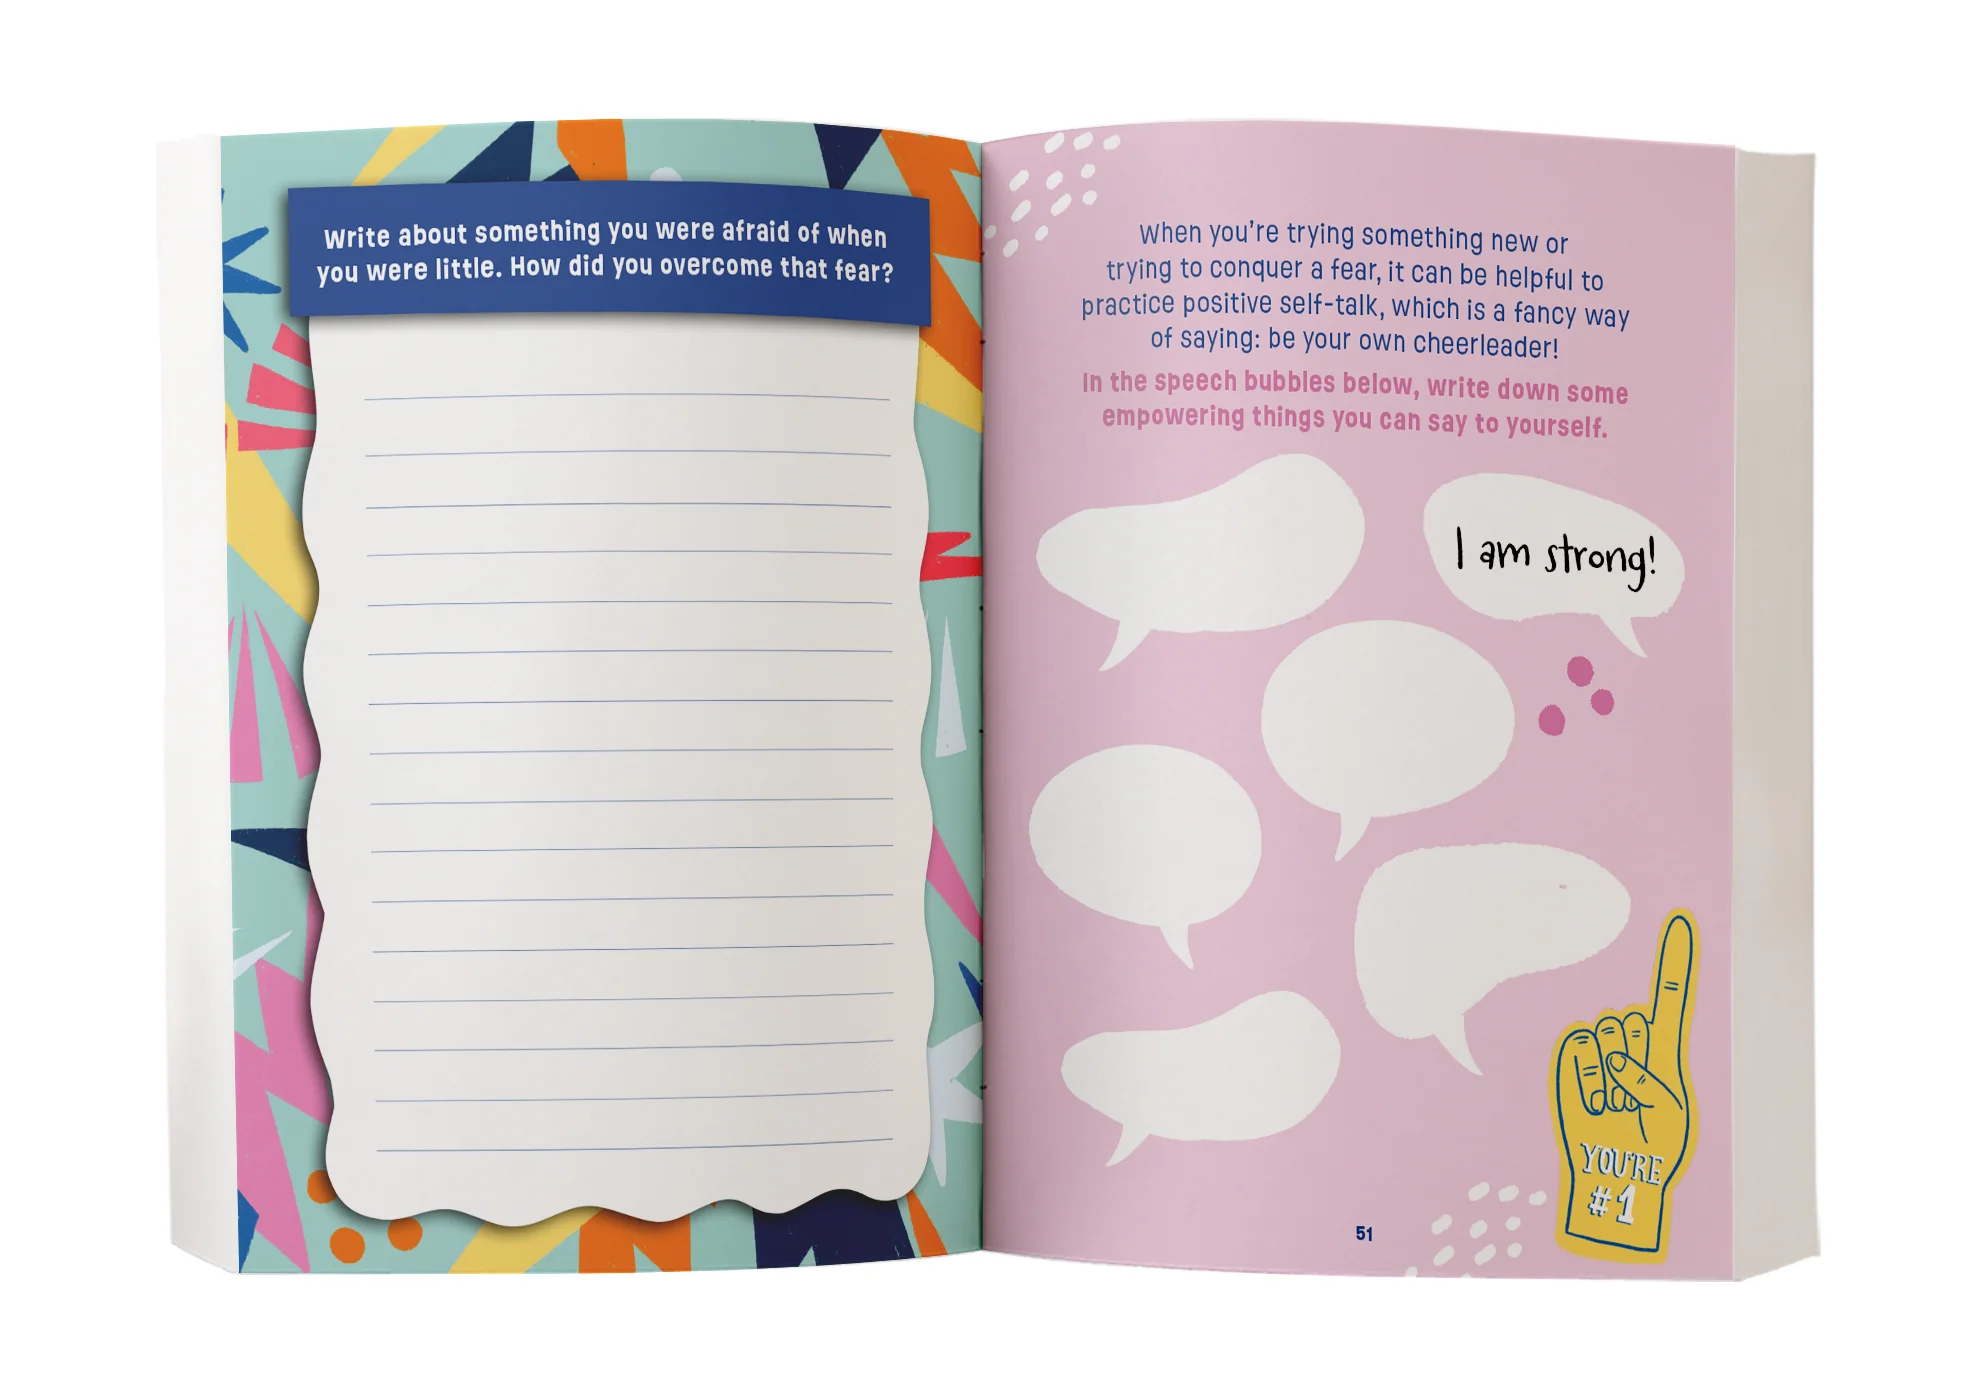 Write about something you were afraid of when
you were little. How did you overcome that fear?
When you're trying something new or
trying to conquer a fear, it can be helpful to
practice positive self-talk, which is a fancy way
of saying: be your own cheerleader!
In the speech bubbles below, write down some
empowering things you can say to yourself.
I am strong!
YOU'RE
#1
51